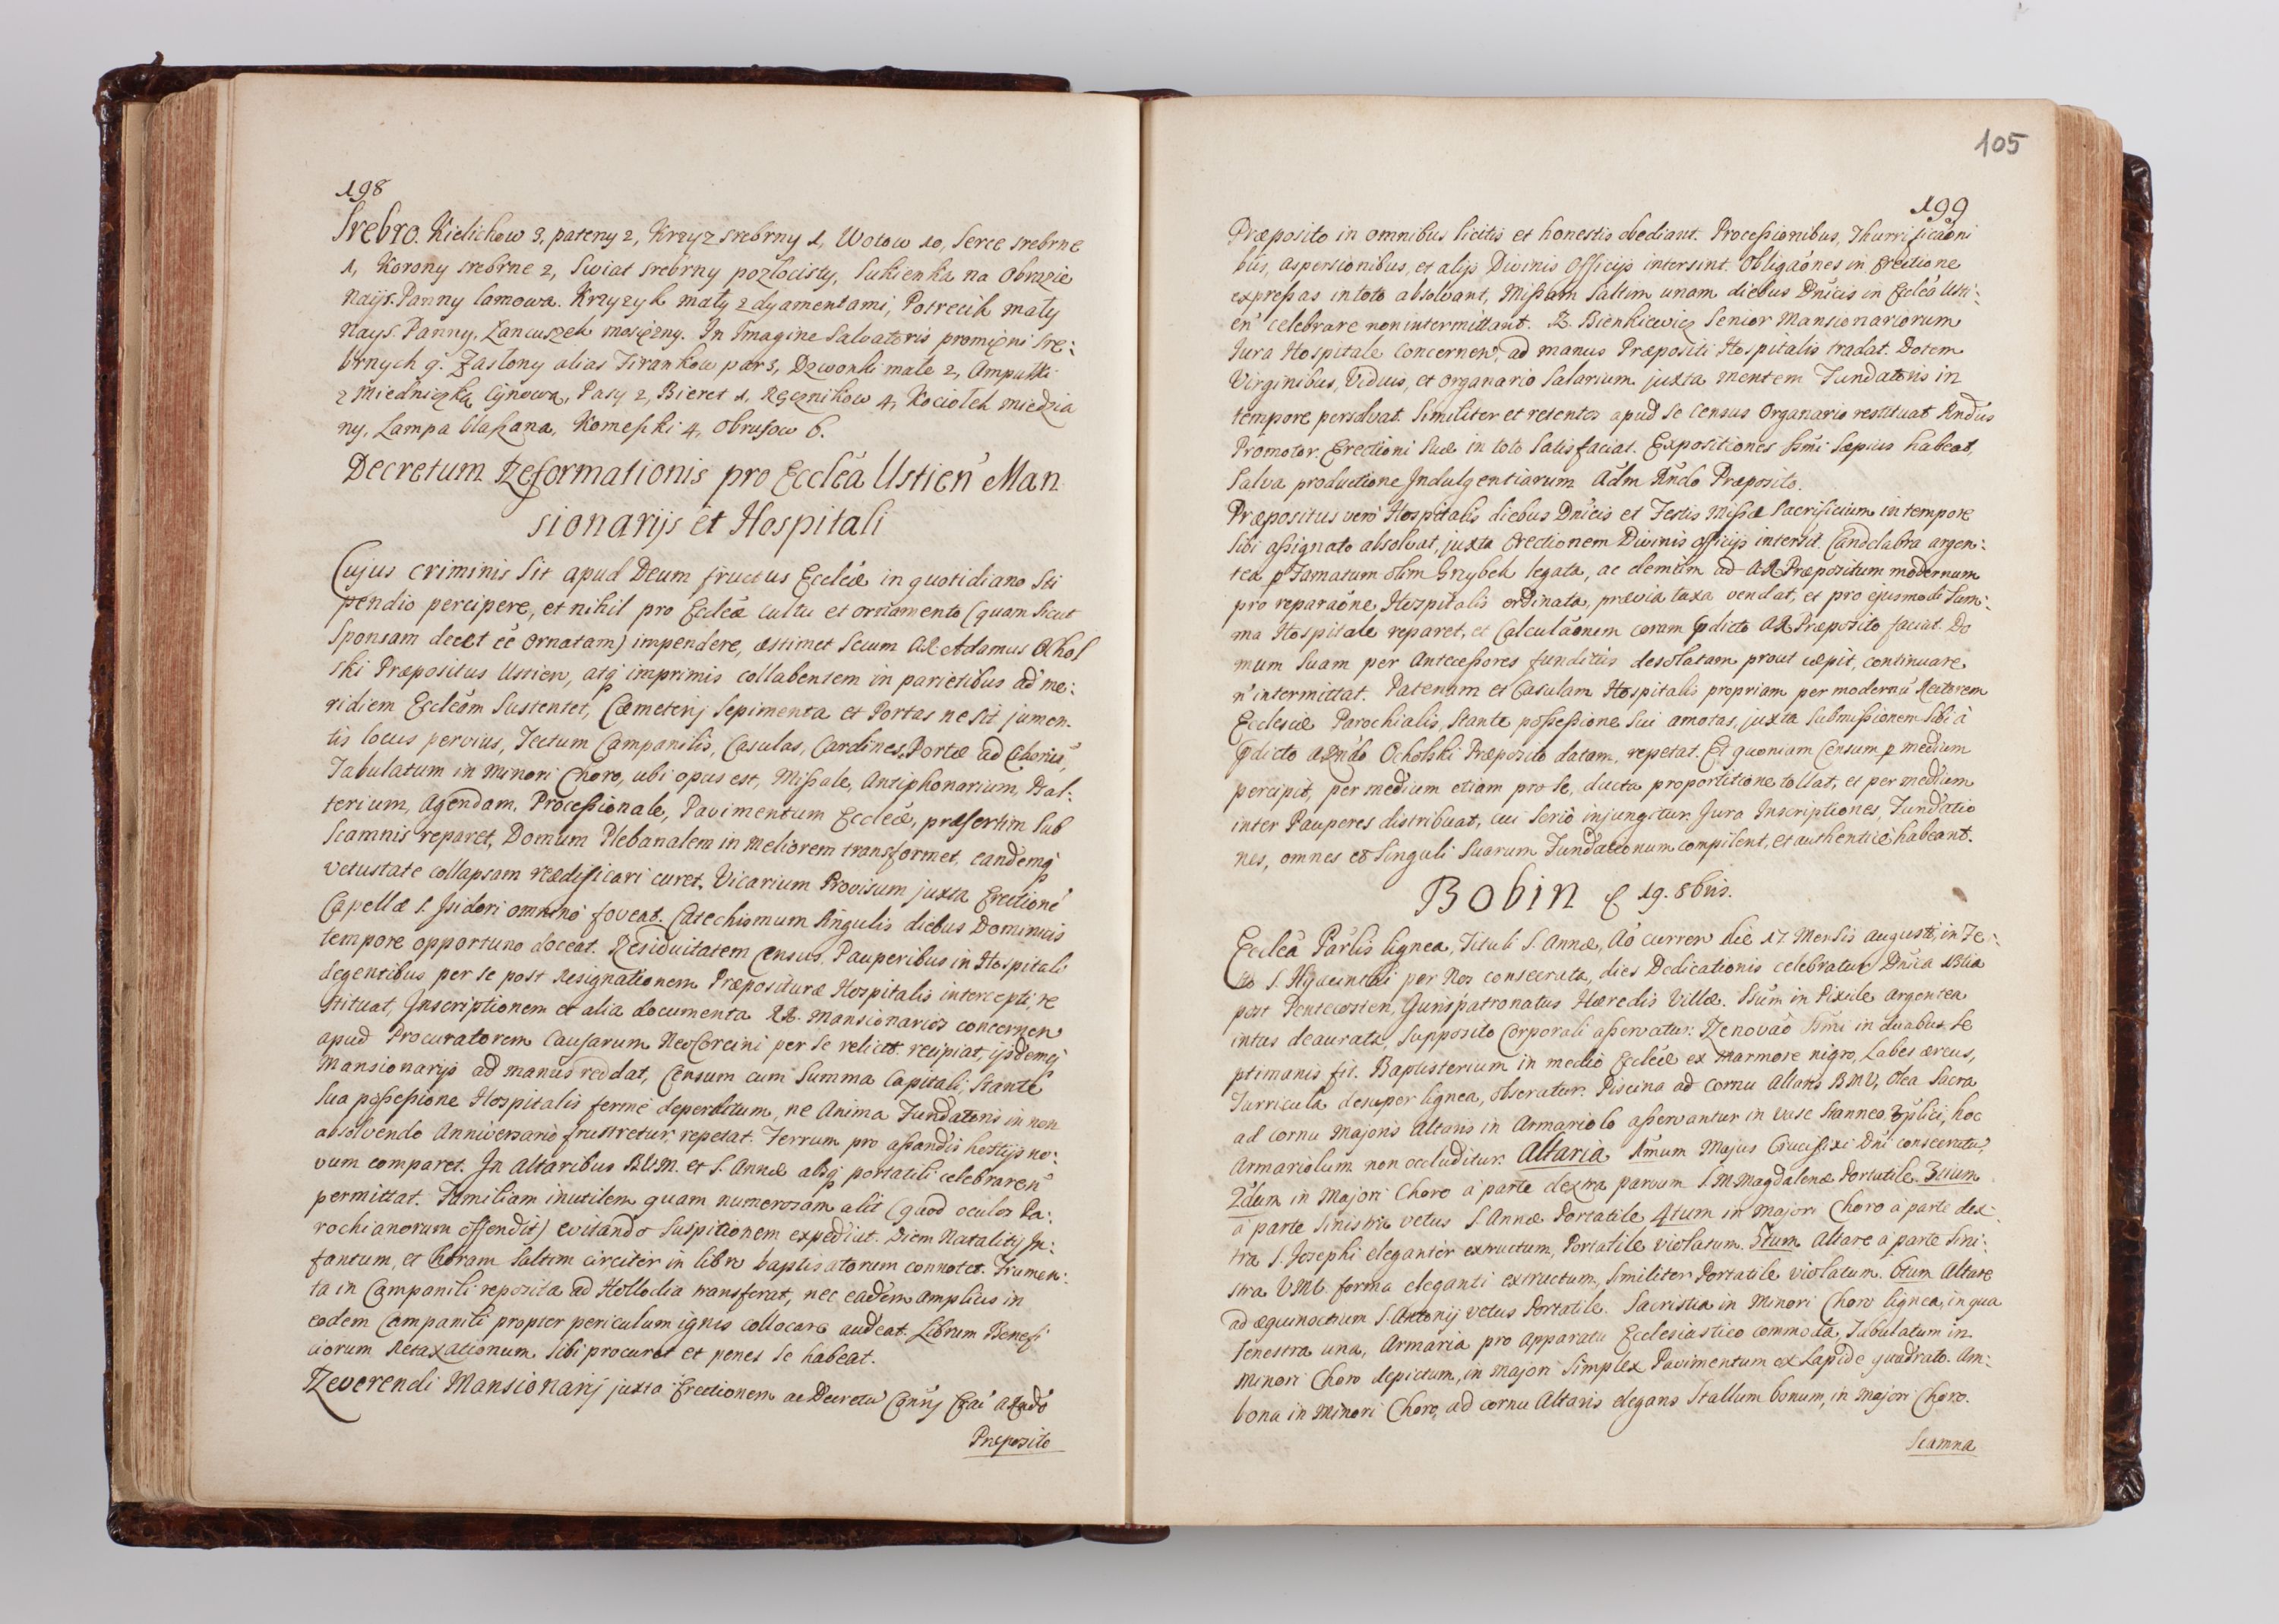 198
Srebro. Kielichow 3, pateny 2, Krzyz srebrny 1, Wotow 10, Serce srebrne
1, Korony srebrne 2, Swiat srebrny pozlocisty, Sukienka na Obrazie
Nayś. Panny lamowa. Krzyzyk mały z dyamentami, Potrecik mały
Nayś. Panny, Łancuszek mosięzny. In Imagine Salvatoris promięni Sre:
brnych 9. Zasłony alias Firankow par 3, Dzwonki małe 2, Ampułki
z Miedniczką Cynowa, Pasy 2, Bieret 1, Ręcznikow 4, Kociołek miedzia
ny, Lampa blaszana, Komeszki 4, Obrusow 6.
Decretum Reformationis pro Eccleâ Ustien Man
sionarijs et Hospitali
Cujus criminis sit apud Deum fructus Eccleæ in quotidiano Sti
pendio percipere, et nihil pro Eccleæ cultu et ornamento (quam sicut
Sponsam decet ee ornatam) impendere, æstimet secum AR Adamus Ochol
ski Præpositus Ustien, atq imprimis collabentem in parietibus ad me:
ridiem Eccleam sustentet, Cæmeterij sepimenta et Portas ne sit jumen-
tis locus pervius, Tectum Campanilis, Casulas, Cardines Portæ ad Chorū,
Tabulatum in minori Choro, ubi opus est, Missale, Antiphonarium, Psal:
terium, Agendam, Processionale, Pavimentum Eccleæ, præsertim sub
Scamnis reparet, Domum Plebanalem in meliorem transformet, eandemq
vetustate collapsam reædificari curet. Vicarium Provisum juxta Erectionē
Capellæ S. Isidori omnino foveat. Catechismum singulis diebus Dominicis
tempore opportuno doceat. Residuitatem Census, Pauperibus in Hospitali
degentibus per se post Resignationem Præposituræ Hospitalis intercepti, re
stituat, Inscriptionem et alia documenta RR. Mansionarios concernen
apud Procuratorem Causarum NeoCorcini per se relict. recipiat, ijsdemq
Mansionarijs ad manus reddat, Censum cum Summa Capitali, stante
sua possessione Hospitalis ferme deperditum, ne Anima Fundatoris in non
absolvendo Anniversario frustretur, repetat. Ferrum pro assandis hostijs no:
vum comparet. In Altaribus BVM. et S. Annæ absq portatili celebraren
permittat. Familiam inutilem quam numerosam alit (quod oculos Pa:
rochianorum offendit) evitando suspitionem expediat. Diem Natalitij In:
fantum, et horam saltim circiter in libro baptisatorum connotet. Frumen:
ta in Campanili reposita ad Hollodia transferat, nec eadem amplius in
eodem Campanili propter periculum ignis collocare audeat. Librum Benefi
ciorum Retaxationum sibi procuret et penes se habeat.
Reverendi Mansionarij juxta Erectionem ac Decretū
Præposito
105
199
Præposito in omnibus licitis et honestis obediant. Processionibus, Thurificaoni
bus, aspersionibus, et alijs Divinis Officijs intersint. Obligaones in Erectione
expressas in toto absolvant, Missam saltim unam diebus Dnicis in Eccleâ Usti:
en celebrare non intermittant. R. Bienkiewicz Senior Mansionariorum
Jura Hospitale concernen, ad manus Præpositi Hospitalis tradat. Dotem
Virginibus, Viduis, et Organario salarium juxta mentem Fundatoris in
tempore persolvat. Similiter et retentos apud se Census Organario restituat. Rndus
Promotor. Erectioni suæ in toto satisfaciat. Expositiones Ssmi sæpius habeat,
salva productione Indulgentiarum Adm Rndo Præposito.
Præpositus vero Hospitalis diebus Dnicis et Festis Missæ Sacrificium in tempore
sibi assignato absolvat, juxta Erectionem Divinis officijs intersit. Candelabra argen:
tea p Famatum olim Grzybek legata, ac demum ad AR Præpositum modernum
pro reparaone Hospitalis ordinata, prævia taxa vendat, et pro ejusmodi Sum:
ma Hospitale reparet, et Calculaonem coram pdicto AR Præposito faciat. Do
mum suam per Antecessores funditus desolatam prout cæpit, continuare
n intermittat. Patenam et Casulam Hospitalis propriam per modernū Rectorem
Ecclesiæ Parochialis, stante possessione sui amotas, juxta submissionem sibi à
pdicto ARndo Ocholski Præposito datam, repetat. Et quoniam Censum p medium
percipit, per medium etiam pro se, ducta proportitione tollat, et per medium
inter Pauperes distribuat, cui serio injungitur. Jura Inscriptiones, Fundatio
nes, omnes et singuli suarum Fundationum compilent, et authentice habeant.
Bobin 19. 8bris.
Eccleâ Parlis lignea, Tituli S. Annæ, Ao curren die 17. Mensis augusti, in Fe:
sto S. Hyacinthi per Nos consecrata, dies Dedicationis celebratur Dnica 13tia
post Pentecosten, Jurispatronatus Hæredis Villæ. Ssmum in Pixide argentea
intus deaurata, supposito Corporali asservatur. Renovao Ssmi in duabus se
ptimanis fit. Baptisterium in medio Eccleæ ex marmore nigro, Labes æreus,
Turricula desuper lignea, obseratur. Piscina ad cornu Altaris BMV, Olea Sacra
ad cornu Majoris Altaris in Armariolo asservantur in vase stanneo 3plici, hoc
Armariolum non occluditur. Altaria 1mum Majus Crucifixi Dni consecratū,
2dum in Majori Choro a parte dextra parvum S. M. Magdalenæ Portatile. 3tium
a parte sinistra vetus S. Annæ Portatile, 4tum in majori Choro a parte dex:
tra S. Josephi eleganter extructum, Portatile violatum. 5tum Altare a parte sini:
stra VM. forma eleganti extructum, similiter Portatile violatum. 6tum Altare
ad æquinoctium S. Antonij vetus Portatile. Sacristia in Minori Choro lignea, in qua
fenestra una, Armaria pro apparatu Ecclesiastico commoda, Tabulatum in
Minori Choro depictum, in majori simplex Pavimentum ex Lapide quadrato. Am:
bona in Minori Choro, ad cornu Altaris elegans Stallum bonum, in Majori Choro.
Scamna